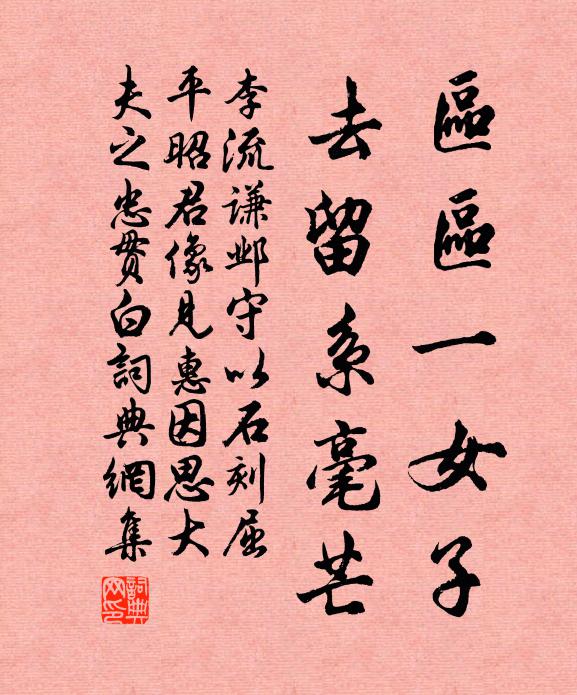 區區一女子
去留系毫芒
李流謙邺守以石刻屈
平昭君像見惠因思大
夫之忠貫白詞典網集
詞典网印